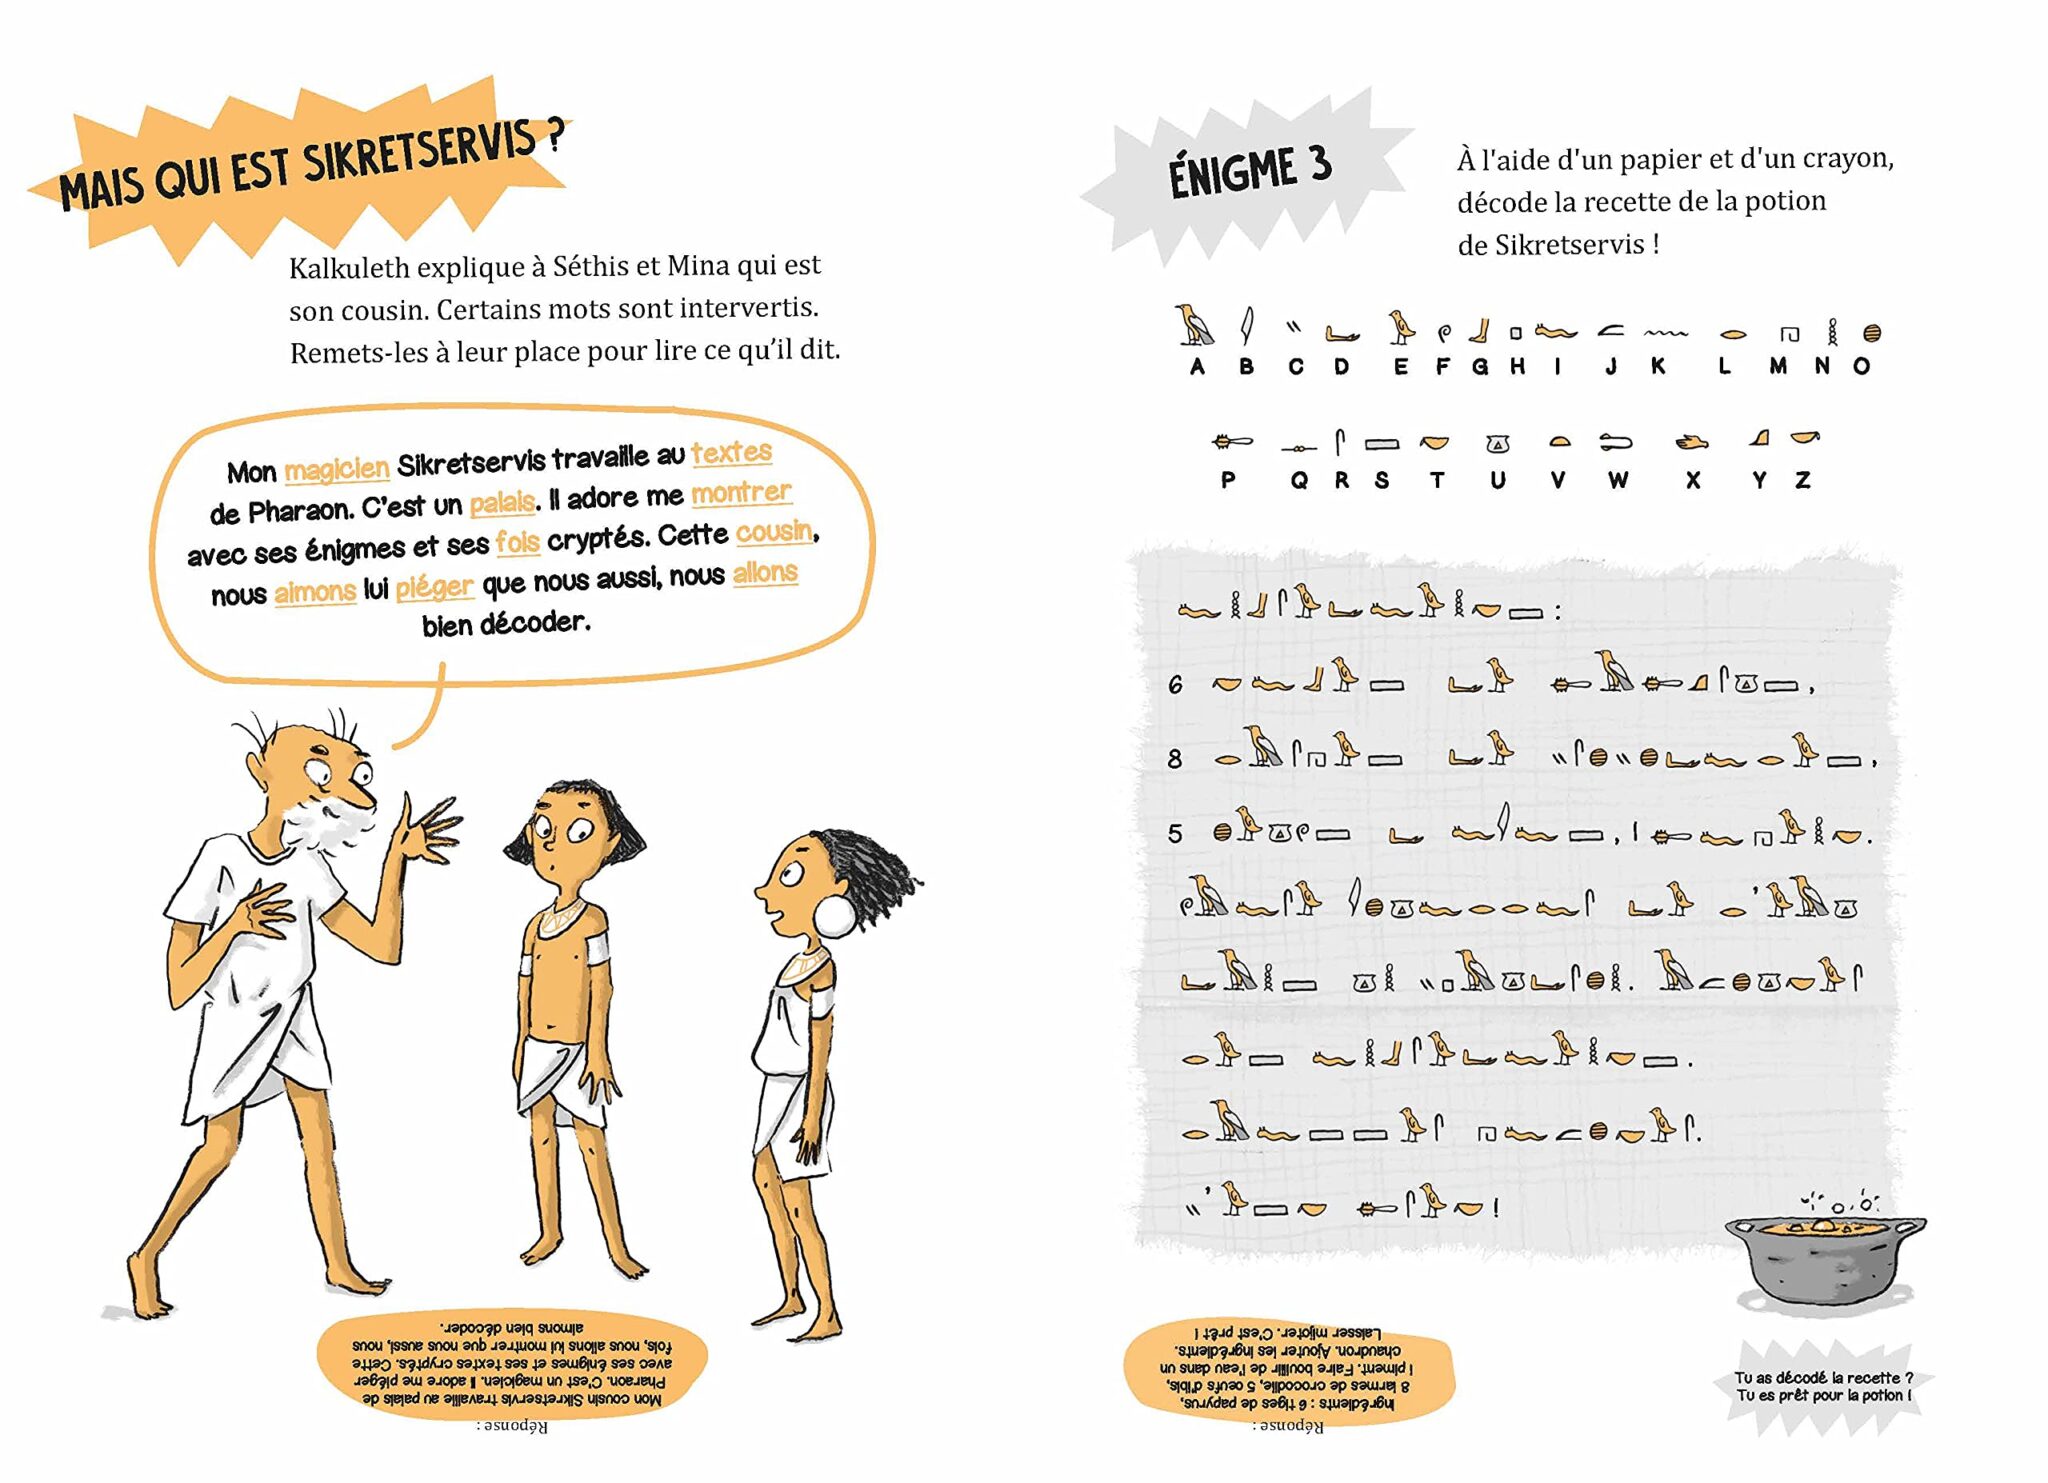 MAIS QUI EST SIKRETSERVIS ?
Kalkuleth explique à Séthis et Mina qui est
son cousin. Certains mots sont intervertis.
Remets-les à leur place pour lire ce qu'il dit.
Mon magicien Sikretservis travaille au textes
de Pharaon. C'est un palais. Il adore me montrer
avec ses énigmes et ses fois cryptés. Cette cousin,
nous aimons lui piéger que nous aussi, nous allons
bien décoder.
Réponse :
Mon cousin Sikretservis travaille au palais de
Pharaon. C'est un magicien. Il adore me piéger
avec ses énigmes et ses textes cryptés. Cette
fois, nous allons lui montrer que nous aussi, nous
aimons bien décoder.
ÉNIGME 3
À l'aide d'un papier et d'un crayon,
décode la recette de la potion
de Sikretservis !
A B C D E F G H I J K L M N O
P Q R S T U V W X Y Z
:
6 ,
8 ,
5 , 1 .
'
.
.
.
' !
Réponse :
Ingrédients : 6 tiges de papyrus,
8 larmes de crocodile, 5 œufs d'ibis,
1 piment. Faire bouillir de l'eau dans un
chaudron. Ajouter les ingrédients.
Laisser mijoter. C'est prêt !
Tu as décodé la recette ?
Tu es prêt pour la potion !